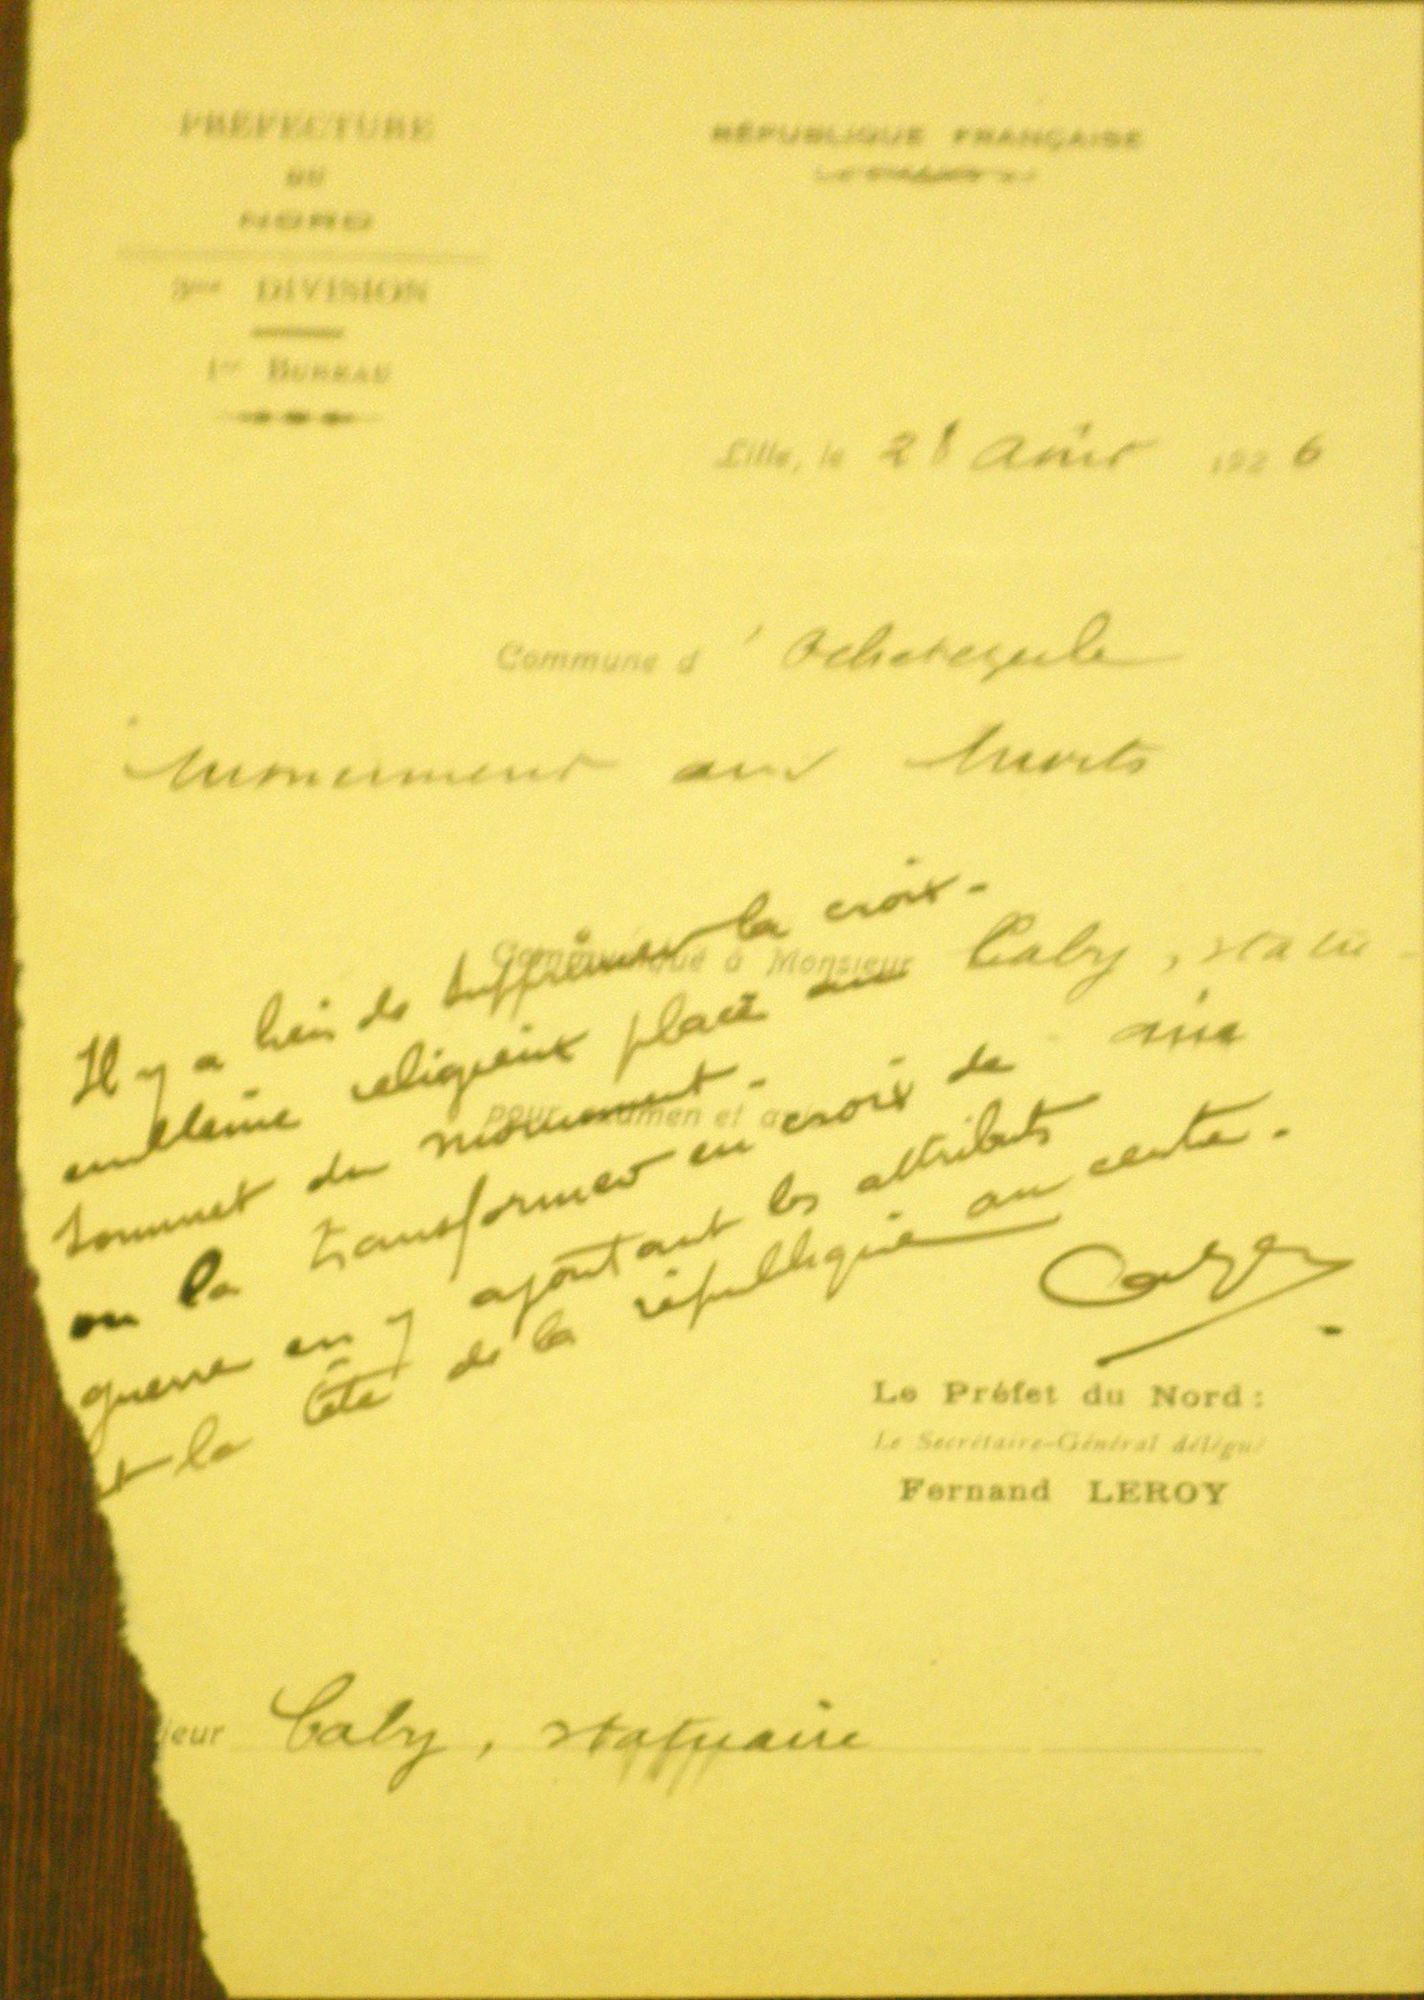 PRÉFECTURE
DU
NORD
3me DIVISION
1er BUREAU
RÉPUBLIQUE FRANÇAISE
Lille, le 28 Août 1926
Commune d'Ochtezeele
Monument aux Morts
Communiqué à Monsieur Caby, statu-
aire
pour examen et avis
Il y a lieu de supprimer la croix -
emblème religieux placé au
sommet du monument -
ou la transformer en croix de
guerre en y ajoutant les attributs
et la tête de la république au centre.
Caby
Le Préfet du Nord :
Le Secrétaire-Général délégué
Fernand LEROY
ieur Caby, statuaire